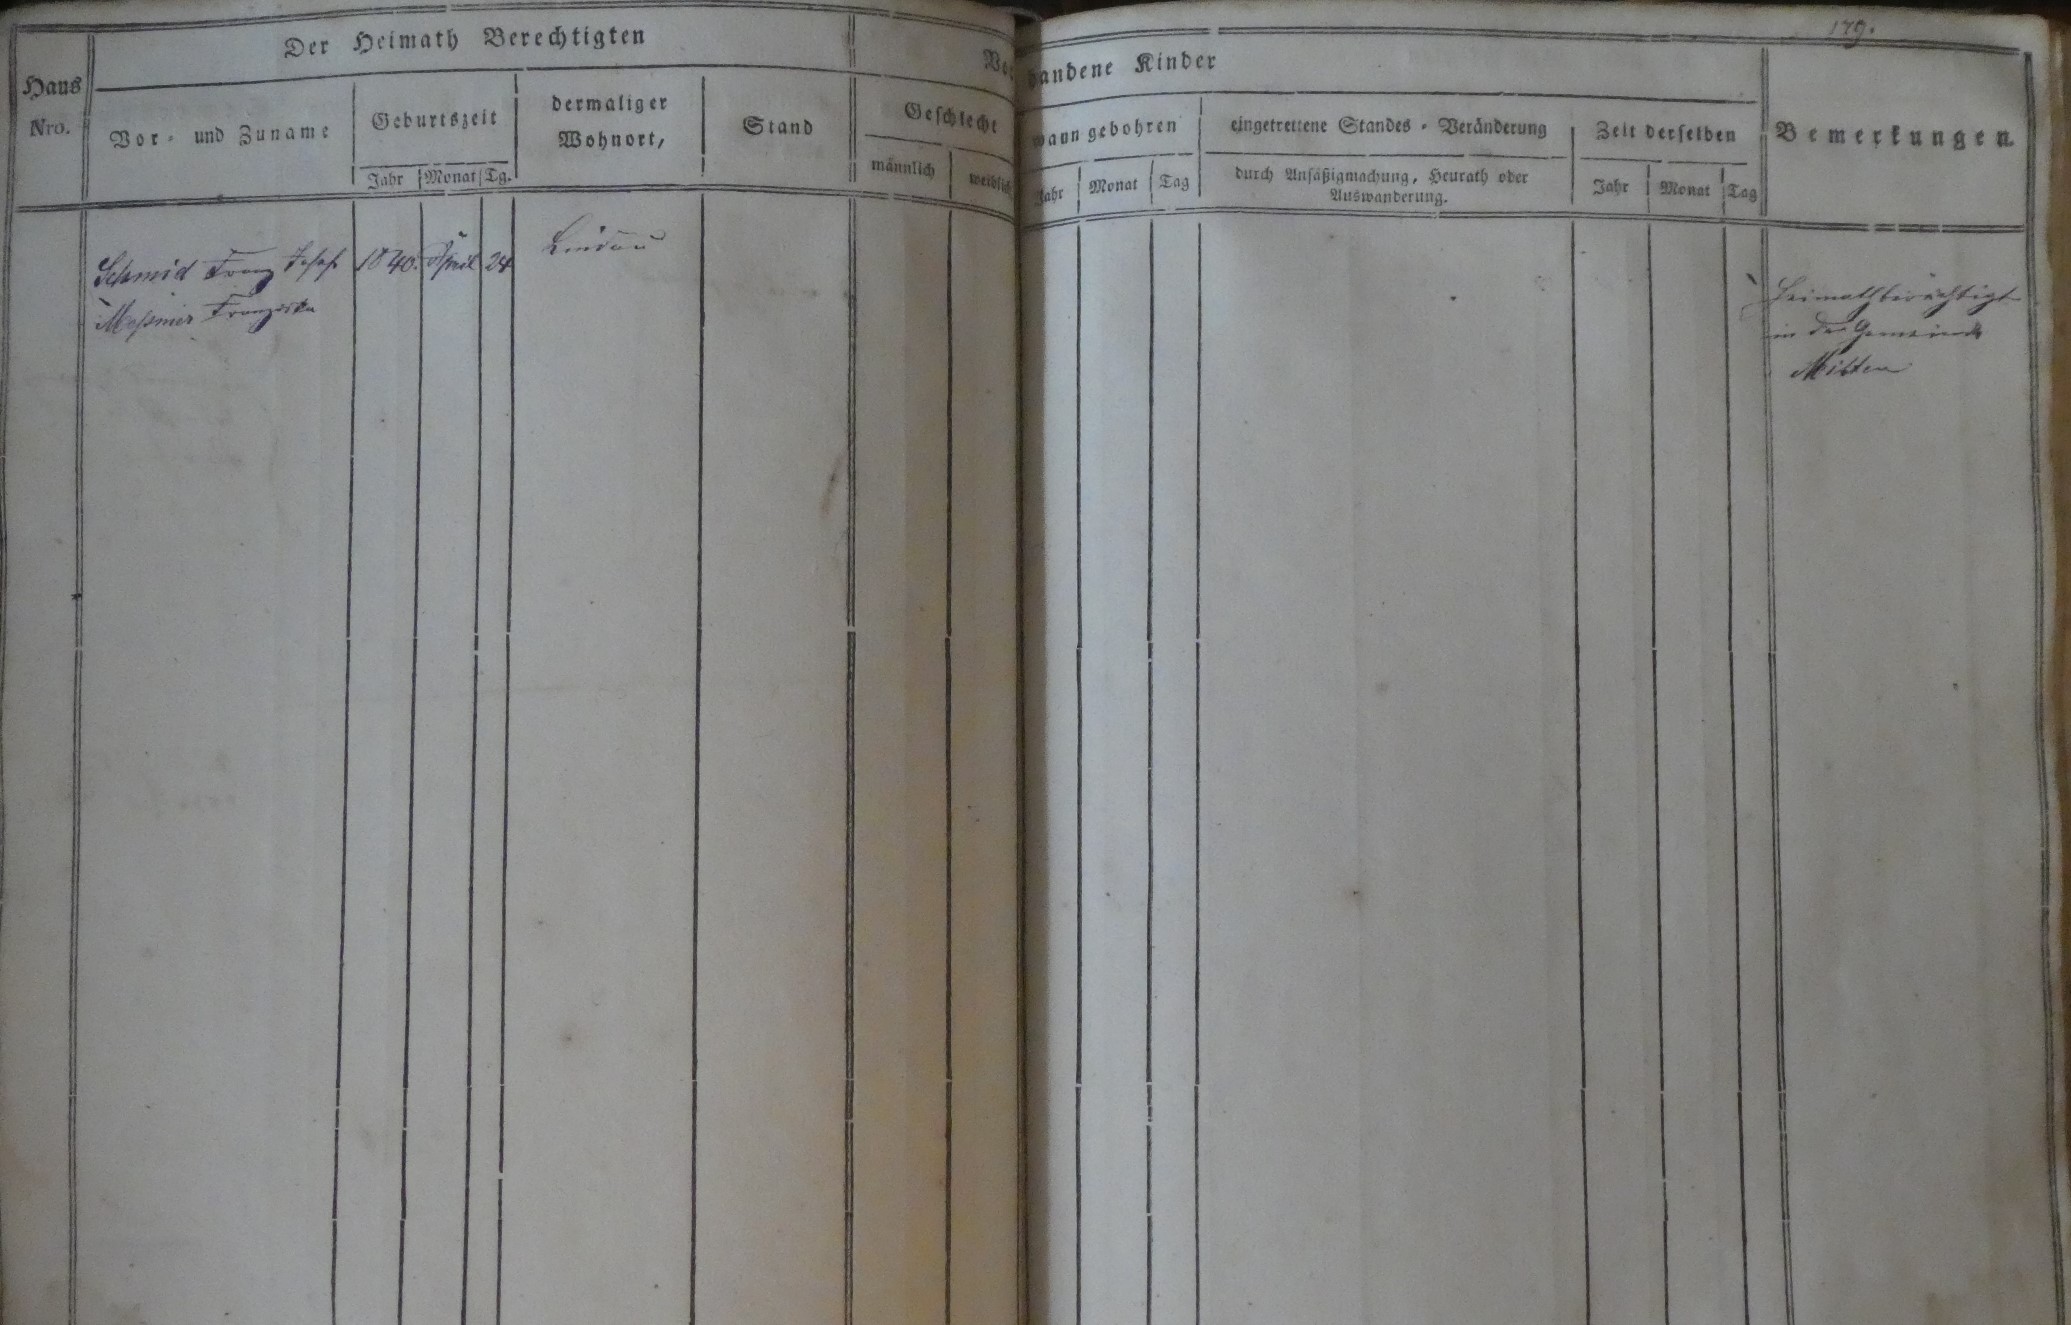 179.
Der Heimath Berechtigten
Vorhandene Kinder
Haus
Nro.
Vor- und Zuname
Geburtszeit
Jahr Monat Tg.
dermaliger
Wohnort,
Stand
Geschlecht
männlich weiblich
wann gebohren
Jahr Monat Tag
eingetrettene Standes-Veränderung
durch Ansäßigmachung, Heurath oder
Auswanderung.
Zeit derselben
Jahr Monat Tag
Bemerkungen.
Schmid Franz Josef 1840. April 24 Lindau
Meßmer Franziska
Heimathberächtigt
in der Gemeinde
Mitten